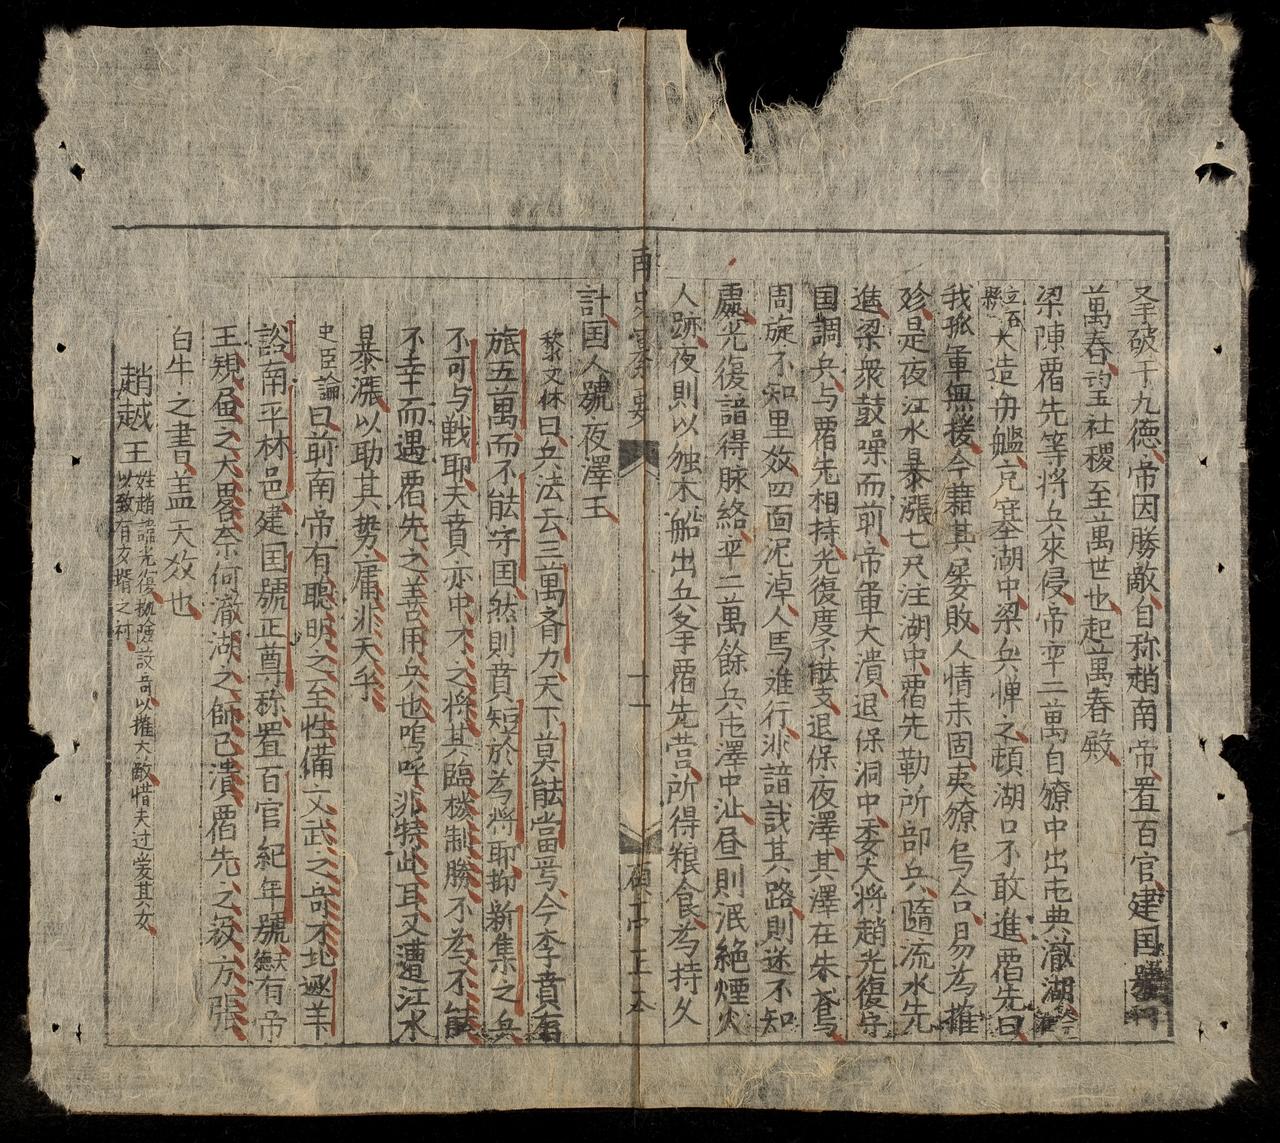 夆破于九德帝因勝敵自称趙南帝置百官建国號
萬春望社稷至萬世也起萬春殿
梁陳霫先等將兵來侵帝卒二萬自獠中出屯典澈湖
立石縣大造舟艦充塞湖中梁兵憚之頓湖口不敢進霫先曰
我孤軍無援今藉其屡敗人情未固夷獠乌合易為摧
殄是夜江水暴漲七尺注湖中霫先勒所部兵隨流水先
進梁衆鼓噪而前帝軍大潰退保洞中委大將趙光復守
国調兵与霫先相持光復度不能支退保夜澤其澤在朱鳶
周旋不知里数四面泥淖人馬难行非諳哉其路則迷不知
處光復諳得脉絡卒二萬餘兵屯澤中沚昼則泯絶煙火
人跡夜則以独木船出兵夆霫先营所得粮食為持久
南史纂要 十一 碩亭正本
計国人號夜澤王
黎文休曰兵法云三萬斉力天下莫能當焉今李賁有
旅五萬而不能守国然則賁短於為將耶抑新集之兵
不可与戦耶夫賁亦中才之将其臨機制勝不為不能
不幸而遇霫先之善用兵也嗚呼非特此耳又遭江水
暴漲以助其势庸非天乎
史臣論曰前南帝有聰明之至性備文武之奇才北逐羊
諮南平林邑建国號正尊称置百官紀年號大德有帝
王規𢀖之大畧奈何澈湖之師已潰霫先之寇方强
白牛之書盖天数也
趙越王 姓趙諱光復據險設奇以摧大敵惜夫过爱其女
以致有文壻之祸